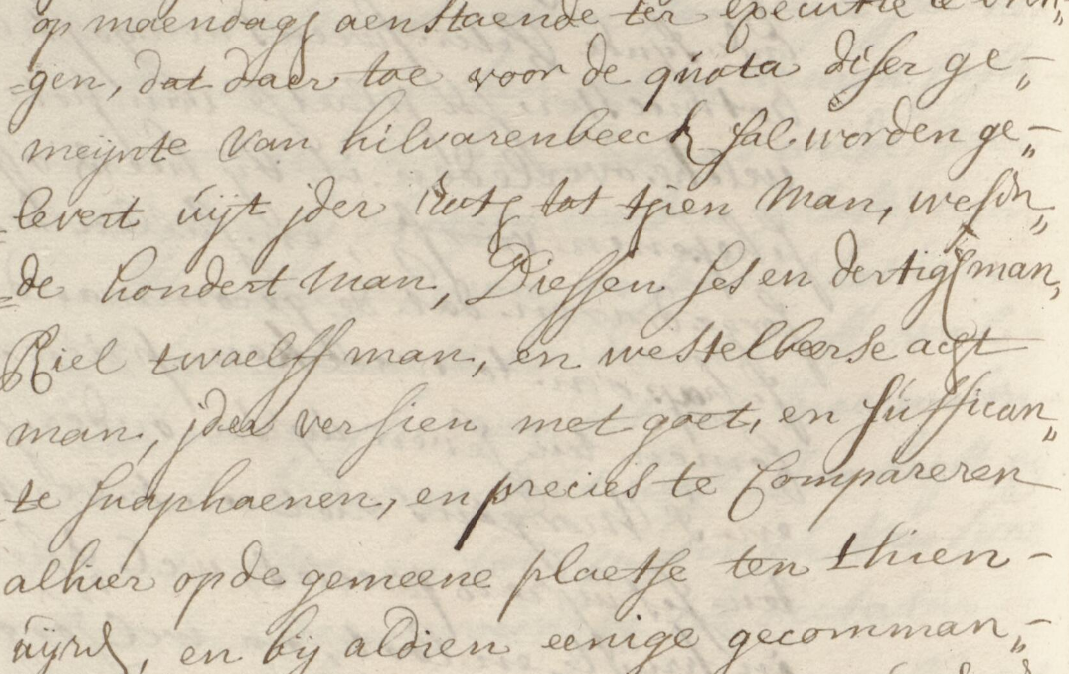 op maendagh aenstaende ter executie te bren„
=gen, dat daer toe voor de quota diser ge„
meijnte van hilvarenbeeck sal worden ge„
levert uijt jder rot tot tjien man, wesen„
=de hondert man, Diessen ses en dertigh man,
Riel twaelff man, en westelbeerse agt
man, jder versien met goet, en suffican„
=te snaphaenen, en precies te Compareren
alhier op de gemeene plaetse ten thien
uijren, en bij aldien eenige gecomman„